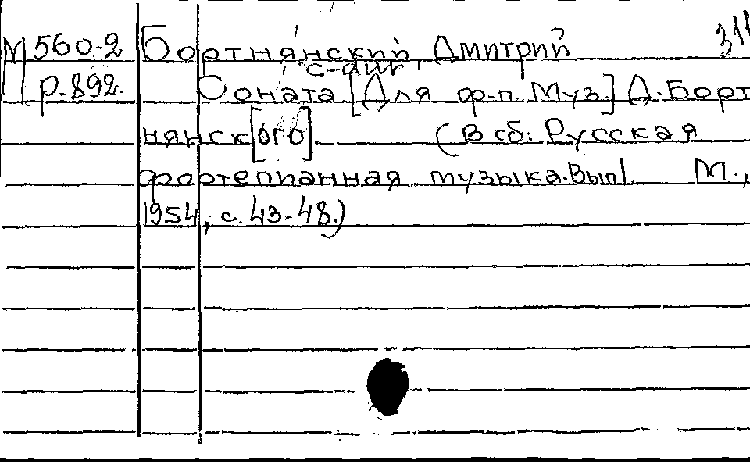 М 560-2 Бортнянский, Дмитрий 311
р-892. Соната [Для ф-п. Муз.] Д. Борт
нянск[ого] (В сб: Русская
фортепианная музыка. Вып 1 М.,
1954, с. 43-48.)